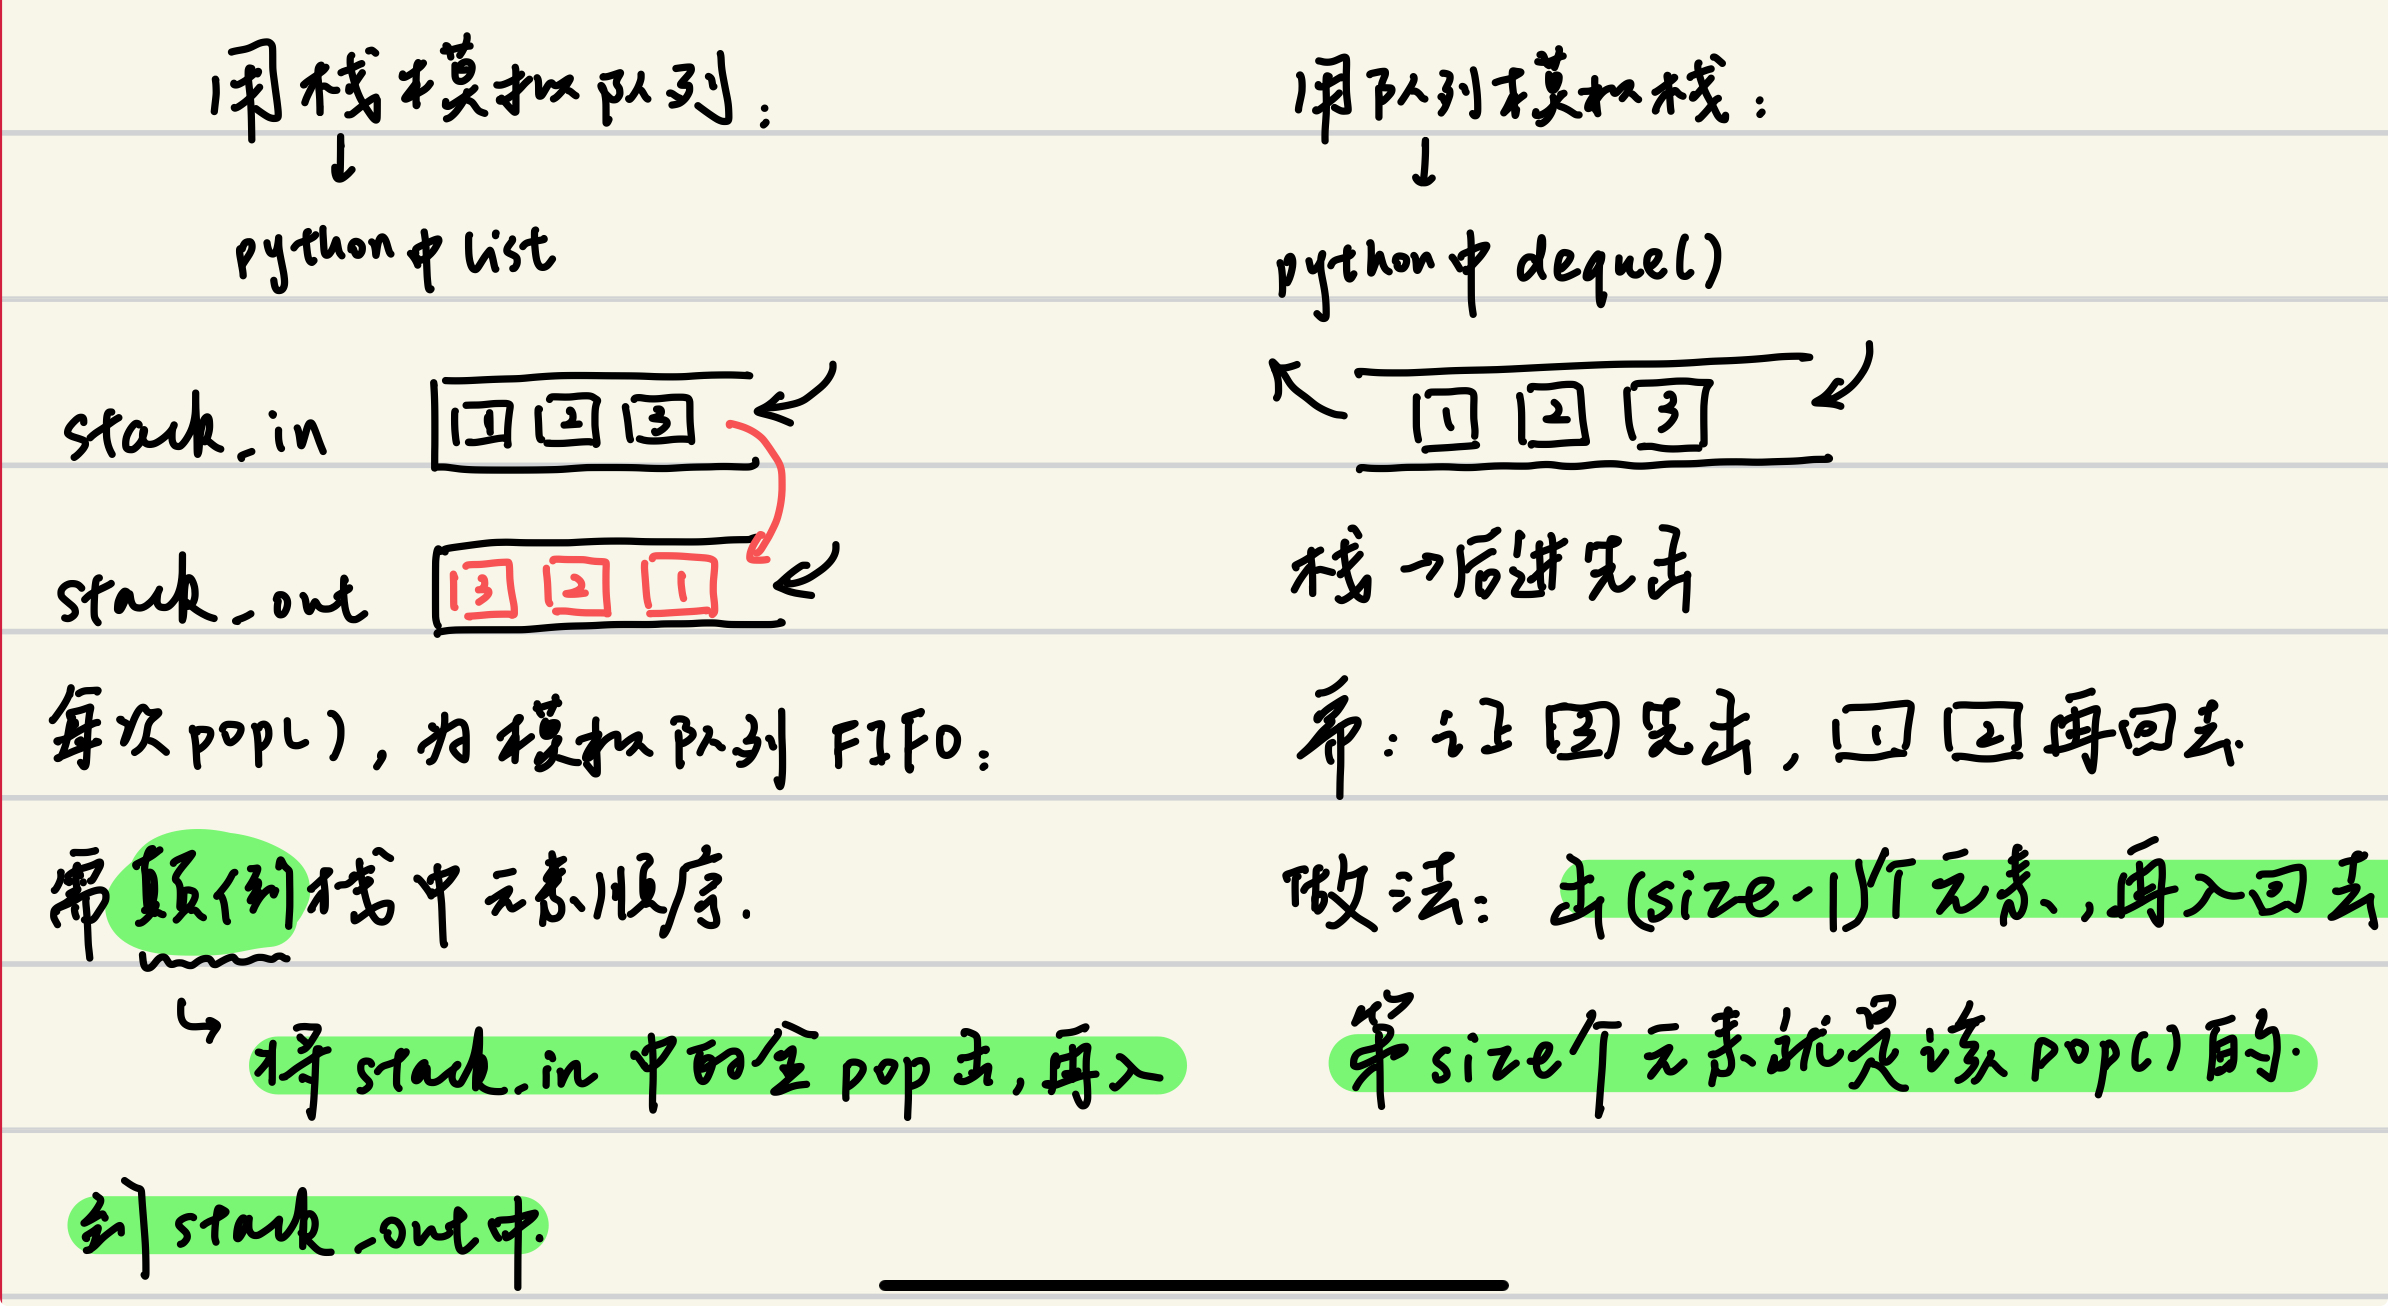 用栈模拟队列：
↓
python中list
stack_in 1 2 3
stack_out 3 2 1
每次pop()，为模拟队列FIFO：
需颠倒栈中元素顺序.
↳ 将stack_in中的全pop出，再入
到stack_out中.
用队列模拟栈：
↓
python中deque()
1 2 3
栈→后进先出
需：让3先出，1 2再回去.
做法：出(size-1)个元素，再入回去
第size个元素就是该pop()的.